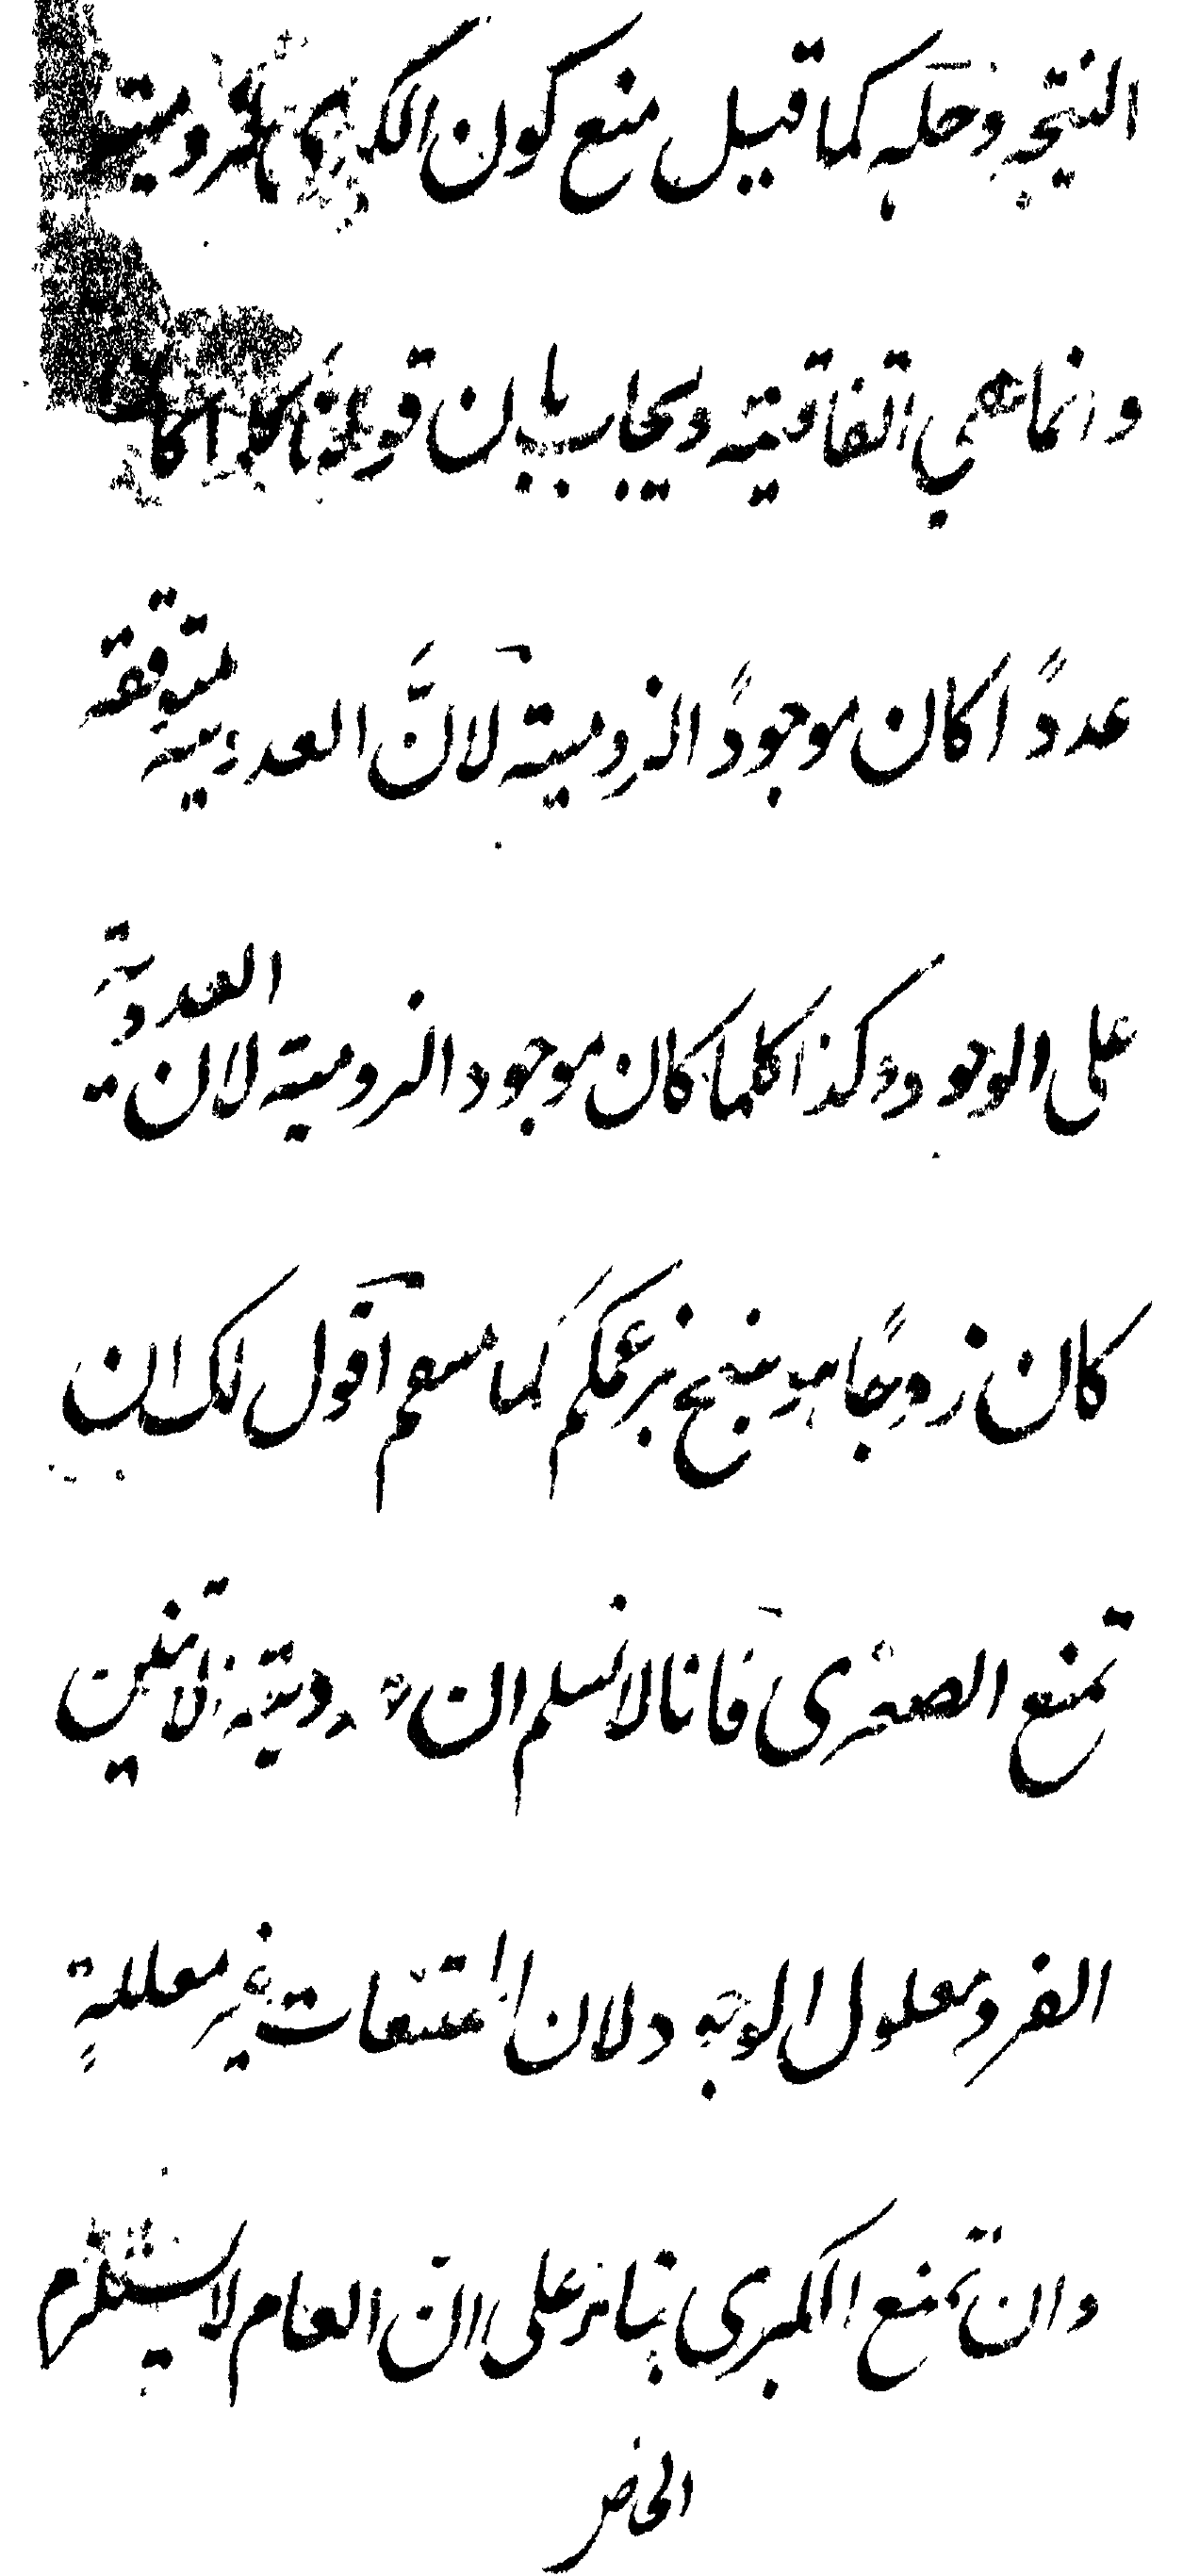 النتيجه وحله كما قيل منع كون الكبرى لزومية
وانما هي اتفاقية ويجاب بان قولنا كلما كان
عدداً كان موجوداً لزومية لانّ العددية متوقفه
على الوجود وكذا كلما كان موجود الزومية لان العددية
كان زوجاً ينتج بزعمكم كما سقم اقول لك ان
تمنع الصغرى فانا لا نسلم ان فردية الاثنين
الفرد معلول الوجود لان الممتنعات غير معللةٍ
وان تمنع الكبرى بناء على ان العام لا يستلزم
الخاص